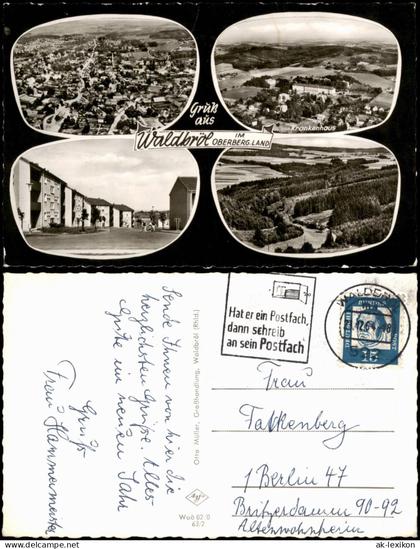 Gruß
aus
Waldbröl IM
OBERBERG. LAND
Krankenhaus
Hat er ein Postfach,
dann schreib
an sein Postfach
WALDBRÖL
Sende Ihnen von hier die
herzlichsten Grüße. Alles
Gute im neuen Jahr
Gruß
Frau Hammermeister
Otto Müller, Großhandlung, Waldbröl (Rhld.)
Wad 62/8
63/2
Frau
Falkenberg
1 Berlin 47
Britzerdamm 90-92
Altenwohnheim
ak-lexikon
© www.ak-lexikon.de
ak-lexikon.de